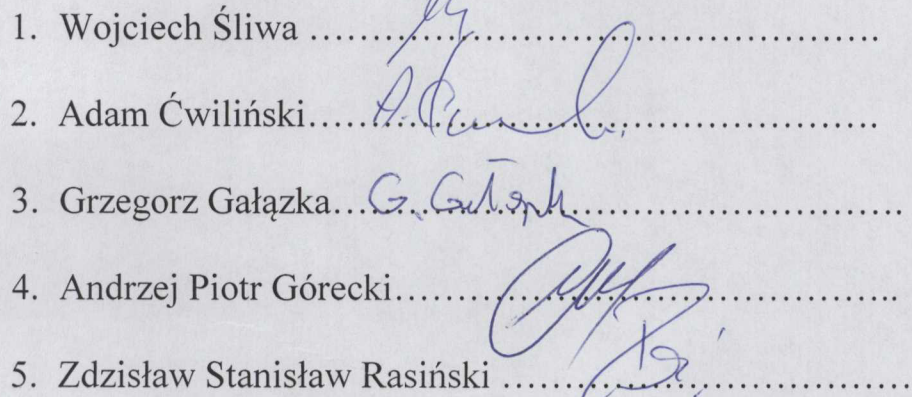 1. Wojciech Śliwa ……………………………………………
2. Adam Ćwiliński……………………………………………
3. Grzegorz Gałązka……………………………………………
4. Andrzej Piotr Górecki……………………………………..
5. Zdzisław Stanisław Rasiński ………………………………